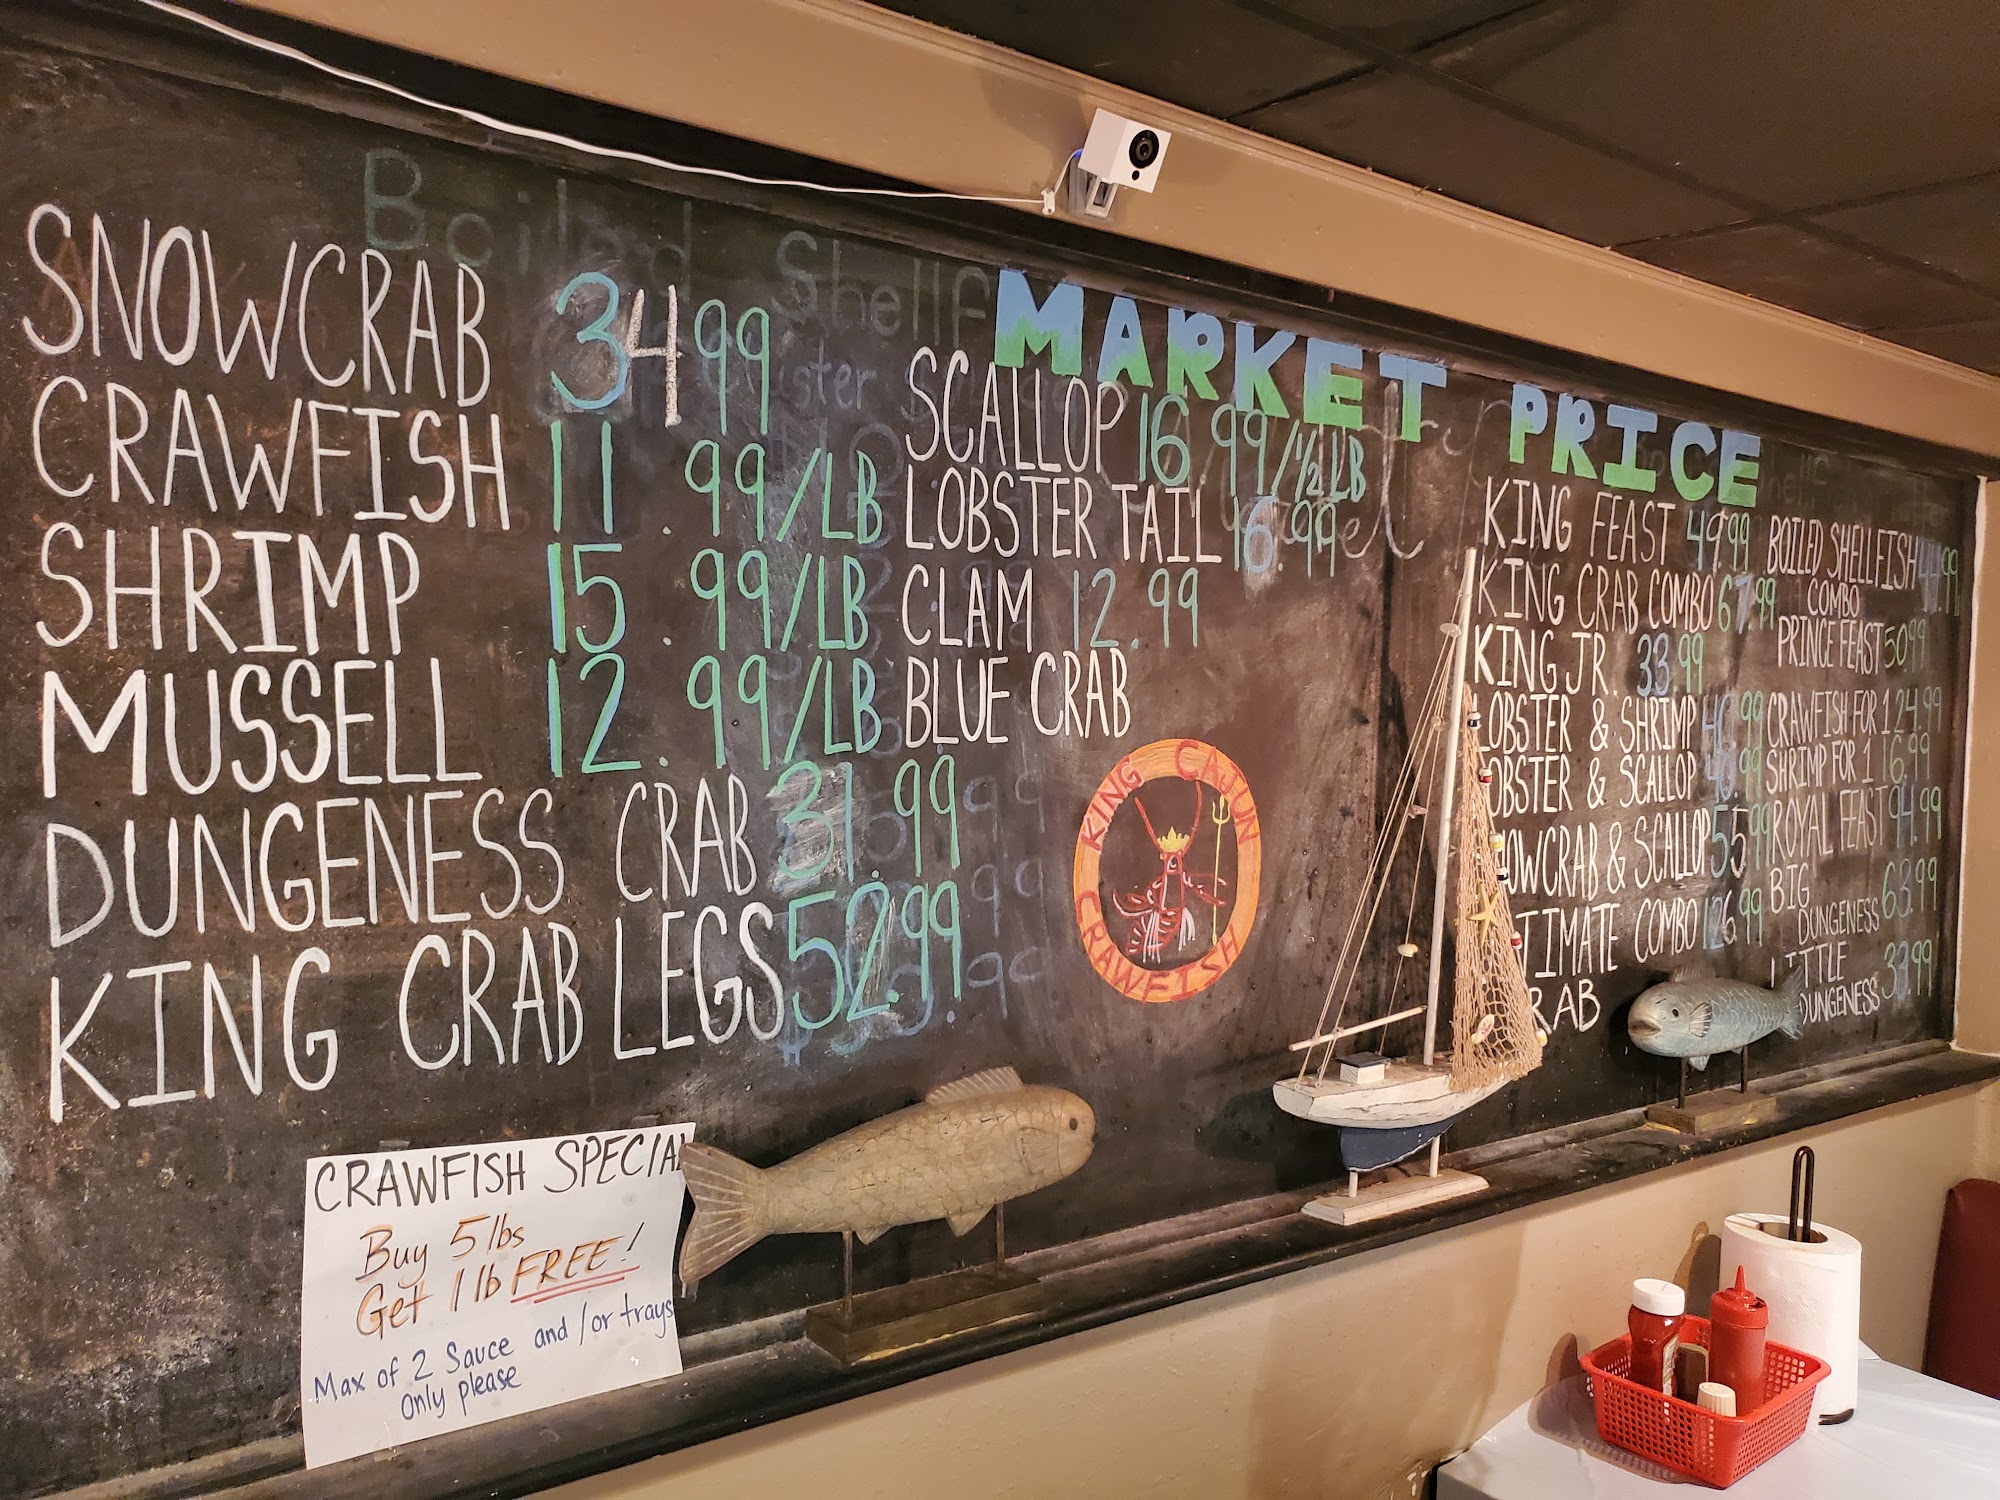 MARKET PRICE
SNOWCRAB 34 99
CRAWFISH 11.99/LB
SHRIMP 15.99/LB
MUSSELL 12.99/LB
DUNGENESS CRAB 31.99
KING CRAB LEGS 52.99
SCALLOP 16 99/½ LB
LOBSTER TAIL 16.99
CLAM 12.99
BLUE CRAB
KING CAJUN
CRAWFISH
KING FEAST 49.99
KING CRAB COMBO 67.99
KING JR. 33.99
LOBSTER & SHRIMP 46.99
LOBSTER & SCALLOP 46.99
SNOWCRAB & SCALLOP 55.99
ULTIMATE COMBO 126.99
CRAB
BOILED SHELLFISH 44.99
COMBO
PRINCE FEAST 50 99
CRAWFISH FOR 1 24.99
SHRIMP FOR 1 16.99
ROYAL FEAST 94.99
BIG
DUNGENESS 63.99
LITTLE
DUNGENESS 33.99
Boiled Shellf
CRAWFISH SPECIAL
Buy 5 lbs
Get 1 lb FREE!
Max of 2 Sauce and/or trays
only please